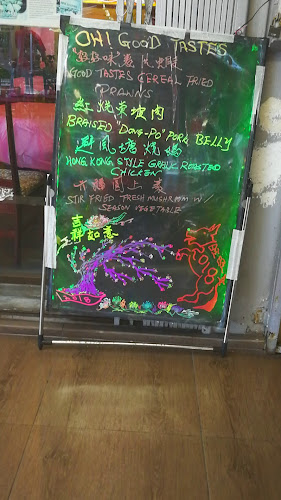 OH! GOOD TASTES
GOOD TASTES CEREAL FRIED
PRAWNS
紅燒東坡肉
BRAISED "DONG-PO" PORK BELLY
避風塘燒鷄
HONG KONG STYLE GARLIC ROASTED
CHICKEN
STIR FRIED FRESH MUSHROOM W/
SEASON VEGETABLE
吉
祥如意
2018